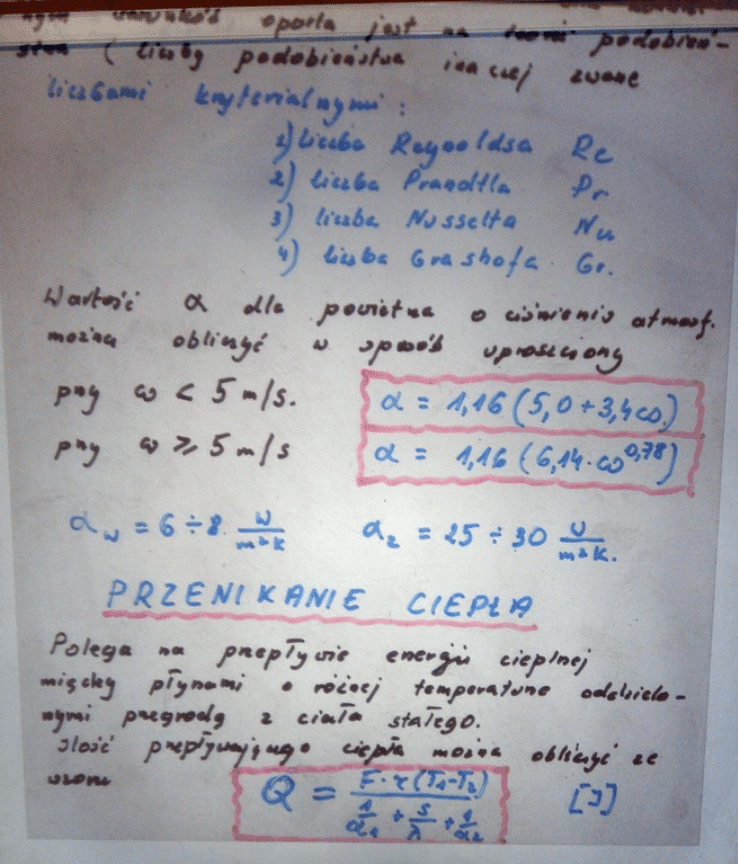 oparta jest na teorii podobień-
stwa ( liczby podobieństwa inaczej zwane
liczbami kryterialnymi :
1) liczba Reynoldsa Re
2) liczba Prandtla Pr
3) liczba Nusselta Nu
4) liczba Grashofa Gr.
Wartość α dla powietrza o ciśnieniu atmosf.
można obliczyć w sposób uproszczony
przy ω < 5 m/s. α = 1,16 ( 5,0 + 3,4 ω.)
przy ω ≥ 5 m/s α = 1,16 ( 6,14 · ω^0,78 )
α_w = 6 ÷ 8 W/m²K α_z = 25 ÷ 30 W/m²K.
PRZENIKANIE CIEPŁA
Polega na przepływie energii cieplnej
między płynami o różnej temperaturze oddzielo-
nymi przegrodą z ciała stałego.
Ilość przepływającego ciepła można obliczyć ze
wzoru Q = F · τ (T₁-T₂) / (1/α₁ + s/λ + 1/α₂) [J]